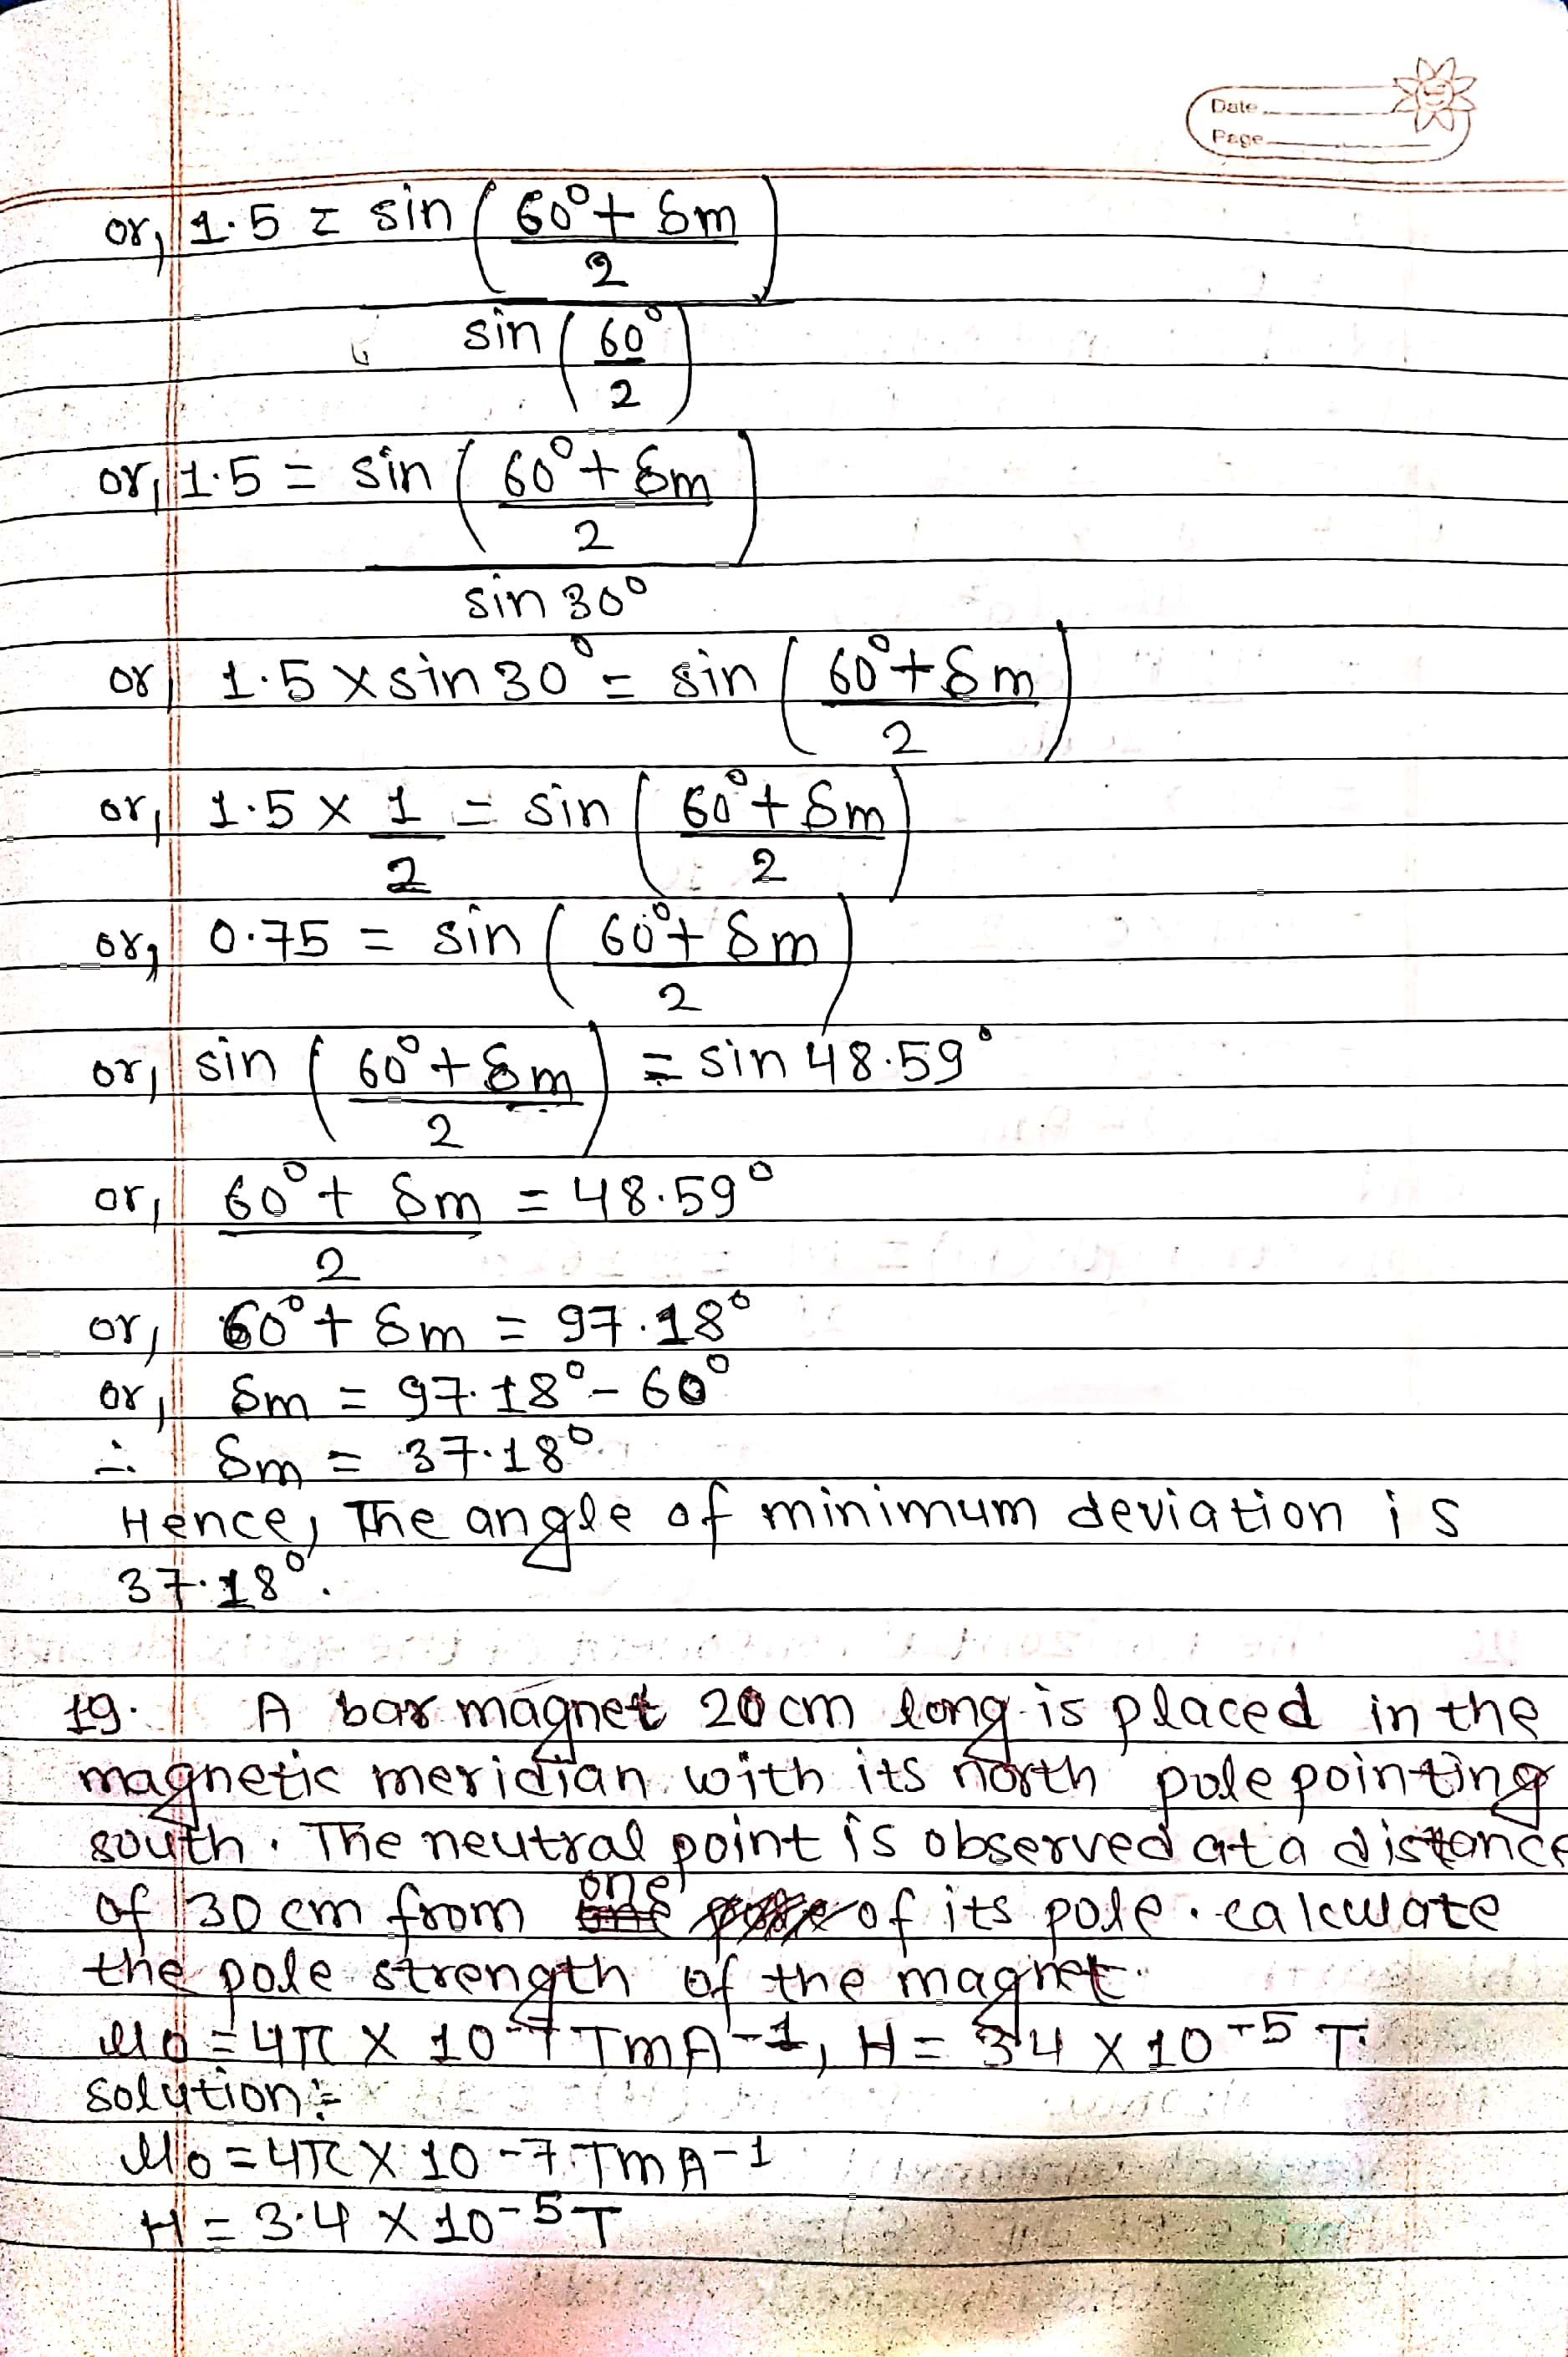 Date
Page
or, 1.5 = sin (60° + δm / 2)
sin (60° / 2)
or, 1.5 = sin (60° + δm / 2)
sin 30°
or, 1.5 × sin 30° = sin (60° + δm / 2)
or, 1.5 × 1/2 = sin (60° + δm / 2)
or, 0.75 = sin (60° + δm / 2)
or, sin (60° + δm / 2) = sin 48.59°
or, 60° + δm / 2 = 48.59°
or, 60° + δm = 97.18°
or, δm = 97.18° - 60°
∴ δm = 37.18°
Hence, The angle of minimum deviation is
37.18°.
19. A bar magnet 20 cm long is placed in the
magnetic meridian with its north pole pointing
south. The neutral point is observed at a distance
of 30 cm from one of its pole. calculate
the pole strength of the magnet.
μ0 = 4π × 10-7 TmA-1, H = 3.4 × 10-5 T.
solution:-
μ0 = 4π × 10-7 TmA-1
H = 3.4 × 10-5 T